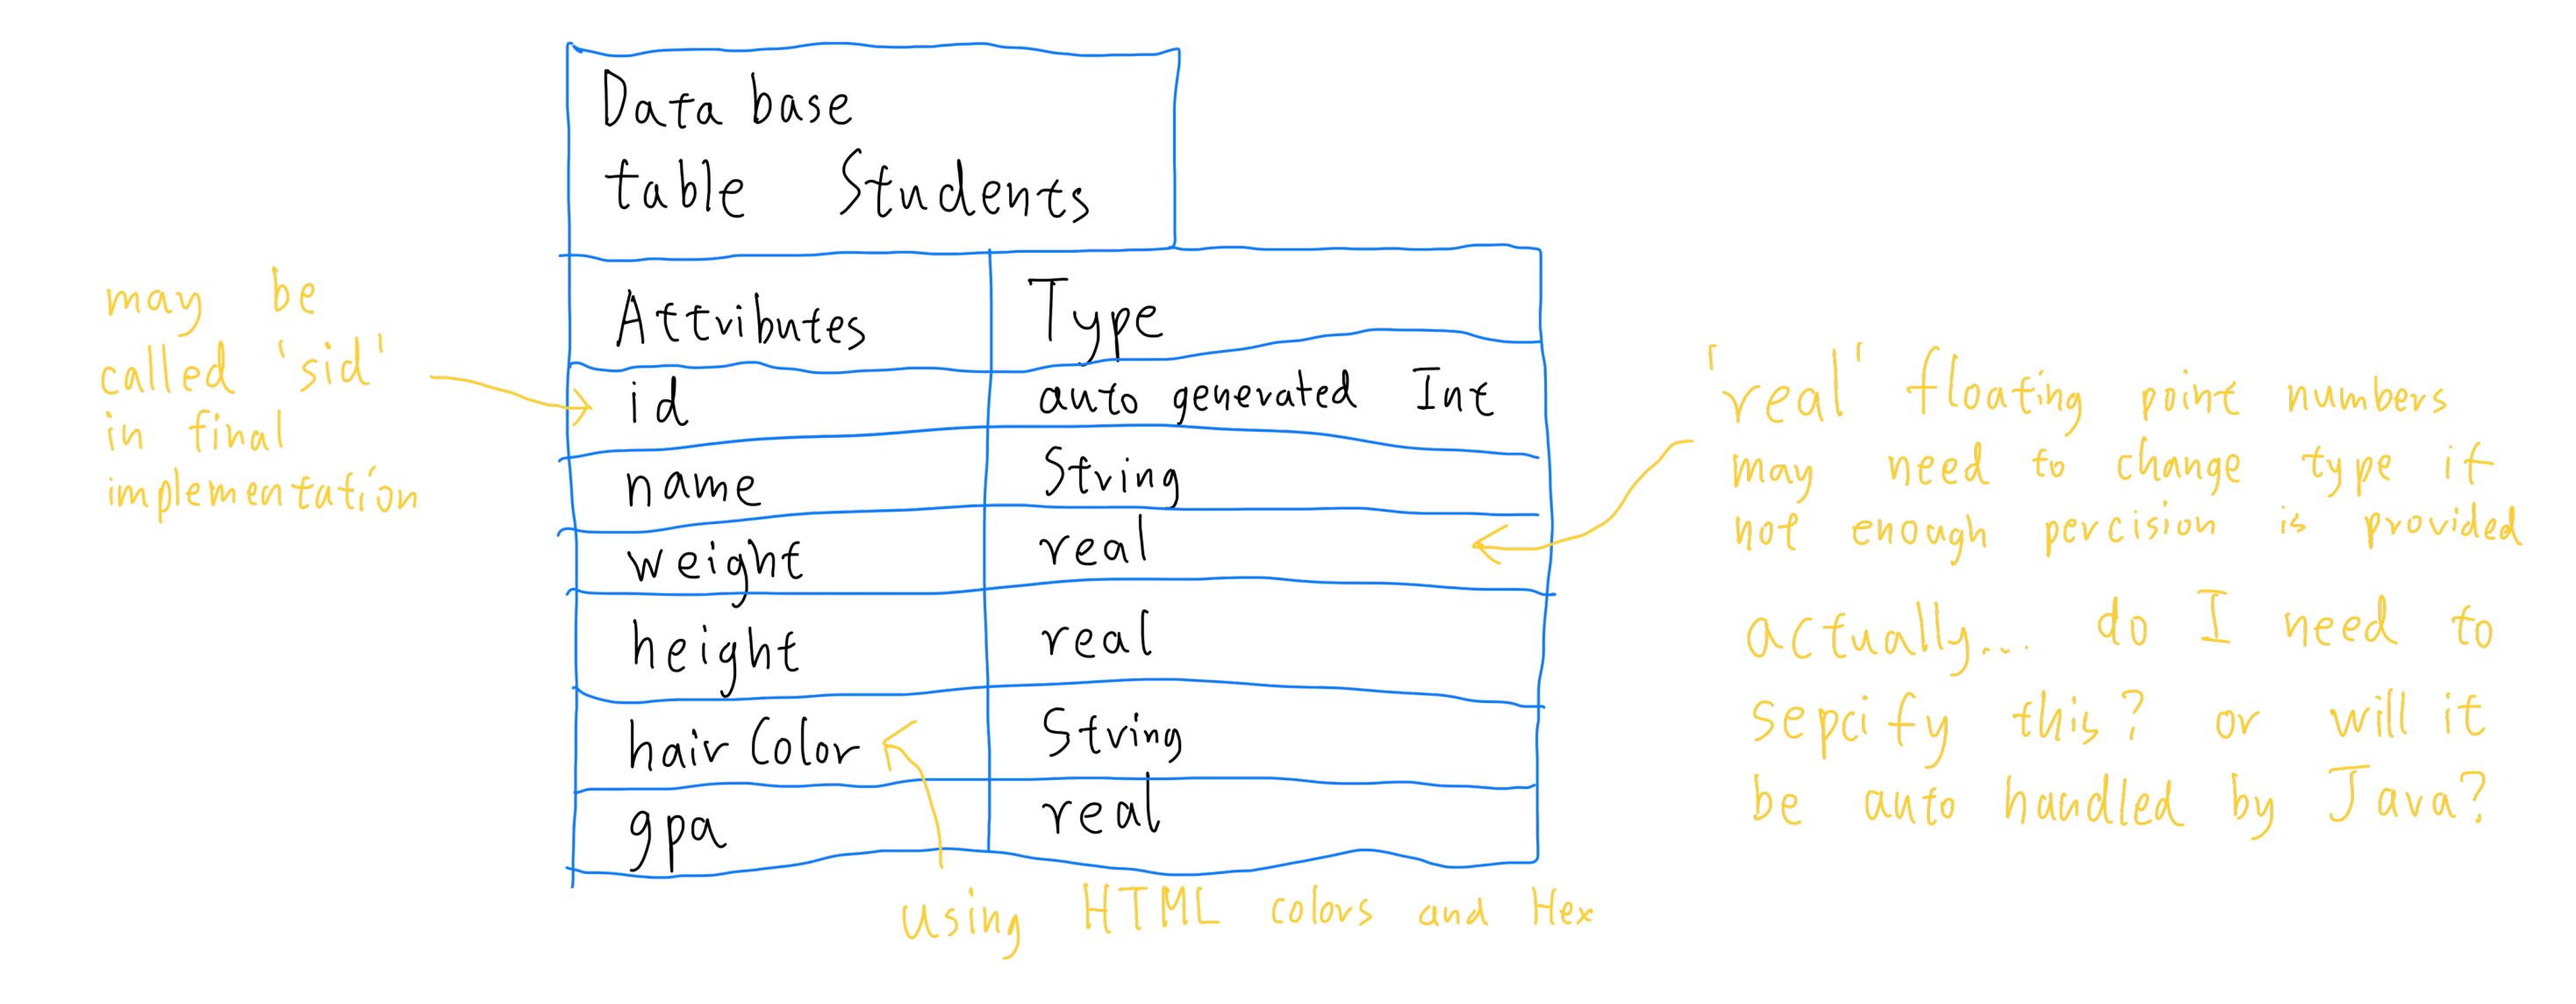 Data base
table Students
Attributes Type
id auto generated Int
name String
weight real
height real
hair Color String
gpa real
may be
called 'sid'
in final
implementation
'real' floating point numbers
may need to change type if
not enough percision is provided
actually... do I need to
sepcify this? or will it
be auto handled by Java?
using HTML colors and Hex